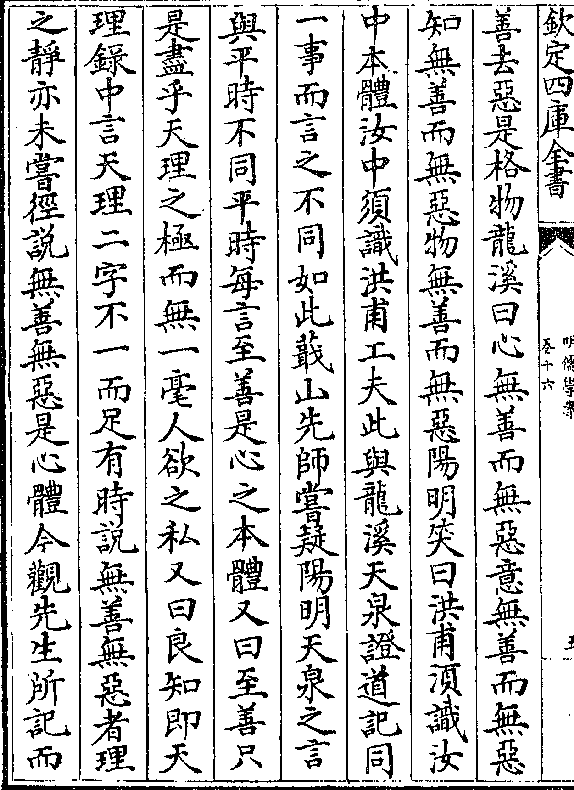 欽定四庫全書
明儒學案
卷十六
五
善去惡是格物龍溪曰心無善而無惡意無善而無惡
知無善而無惡物無善而無惡陽明笑曰洪甫須識汝
中本體汝中須識洪甫工夫此與龍溪天泉證道記同
一事而言之不同如此蕺山先師嘗疑陽明天泉之言
與平時不同平時每言至善是心之本體又曰至善只
是盡乎天理之極而無一毫人欲之私又曰良知即天
理錄中言天理二字不一而足有時説無善無惡者理
之靜亦未嘗徑説無善無惡是心體今觀先生所記而